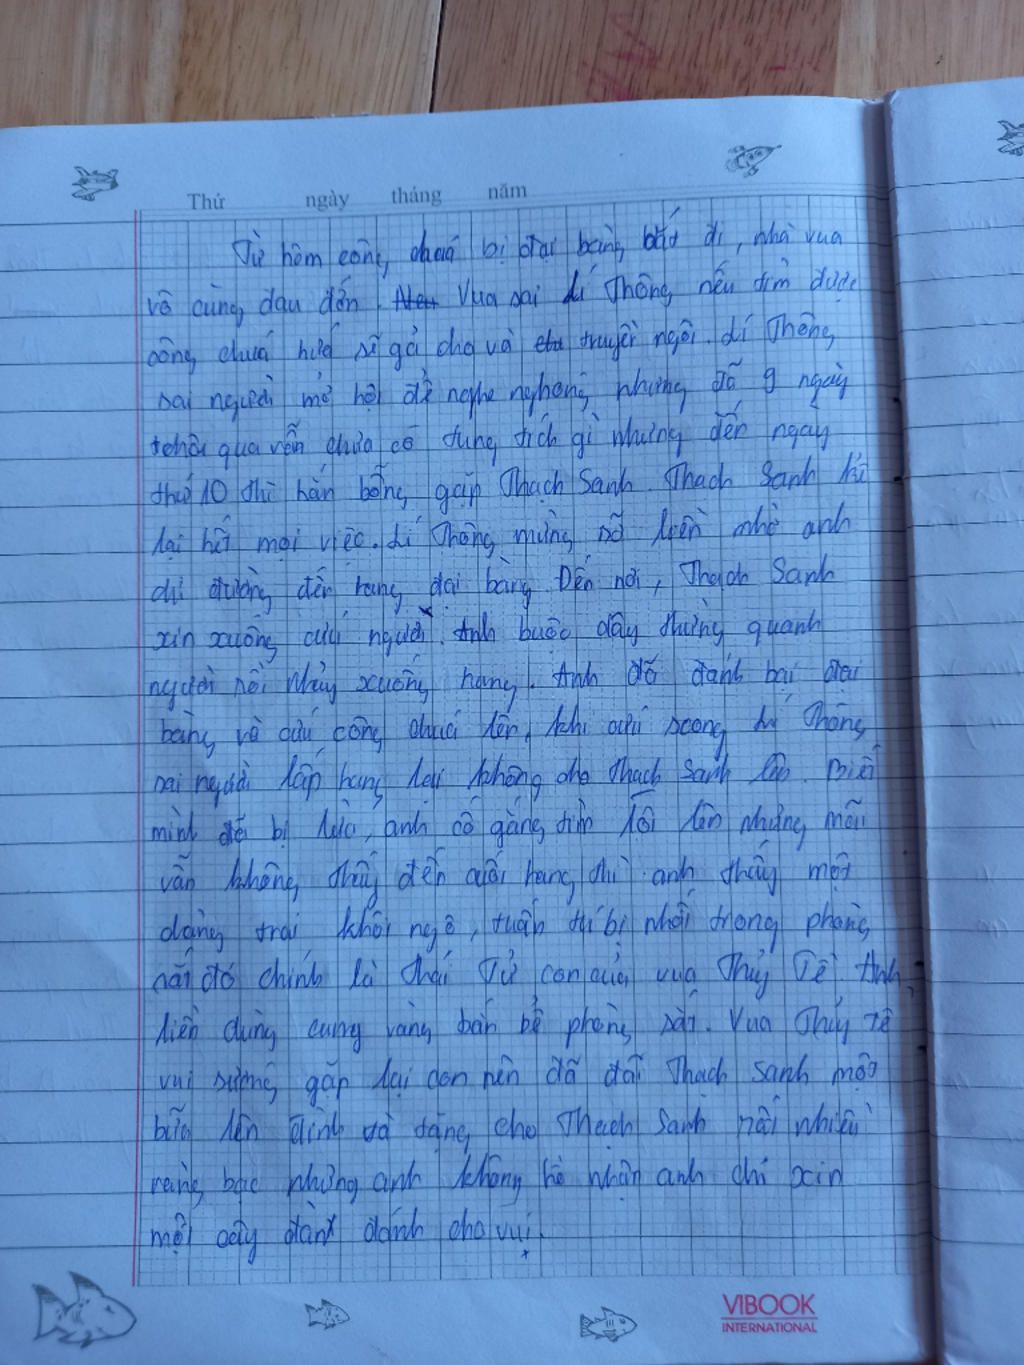 Thứ ngày tháng năm
Từ hôm công chúa bị đại bàng bắt đi, nhà vua
vô cùng đau đớn. Vua sai Lí Thông nếu tìm được
công chúa hứa sẽ gả cho và truyền ngôi. Lí Thông
sai người mở hội để nghe nghóng nhưng đã 9 ngày
qua vẫn chưa có tung tích gì nhưng đến ngày
thứ 10 thì hắn bỗng gặp Thạch Sanh. Thạch Sanh kể
lại hết mọi việc. Lí Thông mừng rỡ liền nhờ anh
chỉ đường đến hang đại bàng. Đến nơi, Thạch Sanh
xin xuống cứu người. Anh buộc dây thừng quanh
người rồi nhảy xuống hang. Anh đã đánh bại đại
bàng và cứu công chúa lên, khi cứu xong Lí Thông
sai người lấp hang lại không cho Thạch Sanh lên. Biết
mình đã bị lừa, anh cố gắng tìm lối lên nhưng mãi
vẫn không thấy đến cuối hang thì anh thấy một
chàng trai khôi ngô, tuấn tú bị nhốt trong phòng
sắt đó chính là thái Tử con của vua Thủy Tề. Anh
liền dùng cung vàng bắn bể phòng sắt. Vua Thủy Tề
vui sướng gặp lại con nên đã đãi Thạch Sanh một
bữa lên đình và tặng cho Thạch Sanh rất nhiều
vàng bạc nhưng anh không hề nhận anh chỉ xin
một cây đàn đánh cho vui.
VIBOOK
INTERNATIONAL